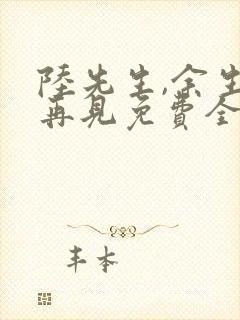 陸先生,余生
再見免費全
丰本